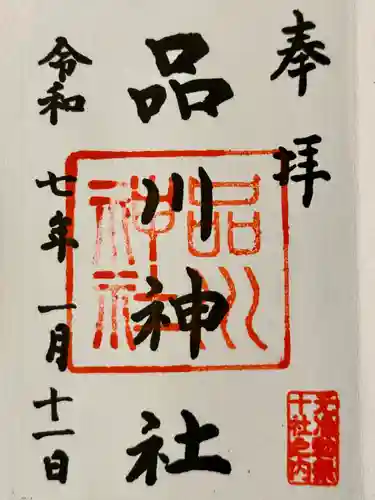 奉拝
品川神社
令和七年一月十一日
品川神社